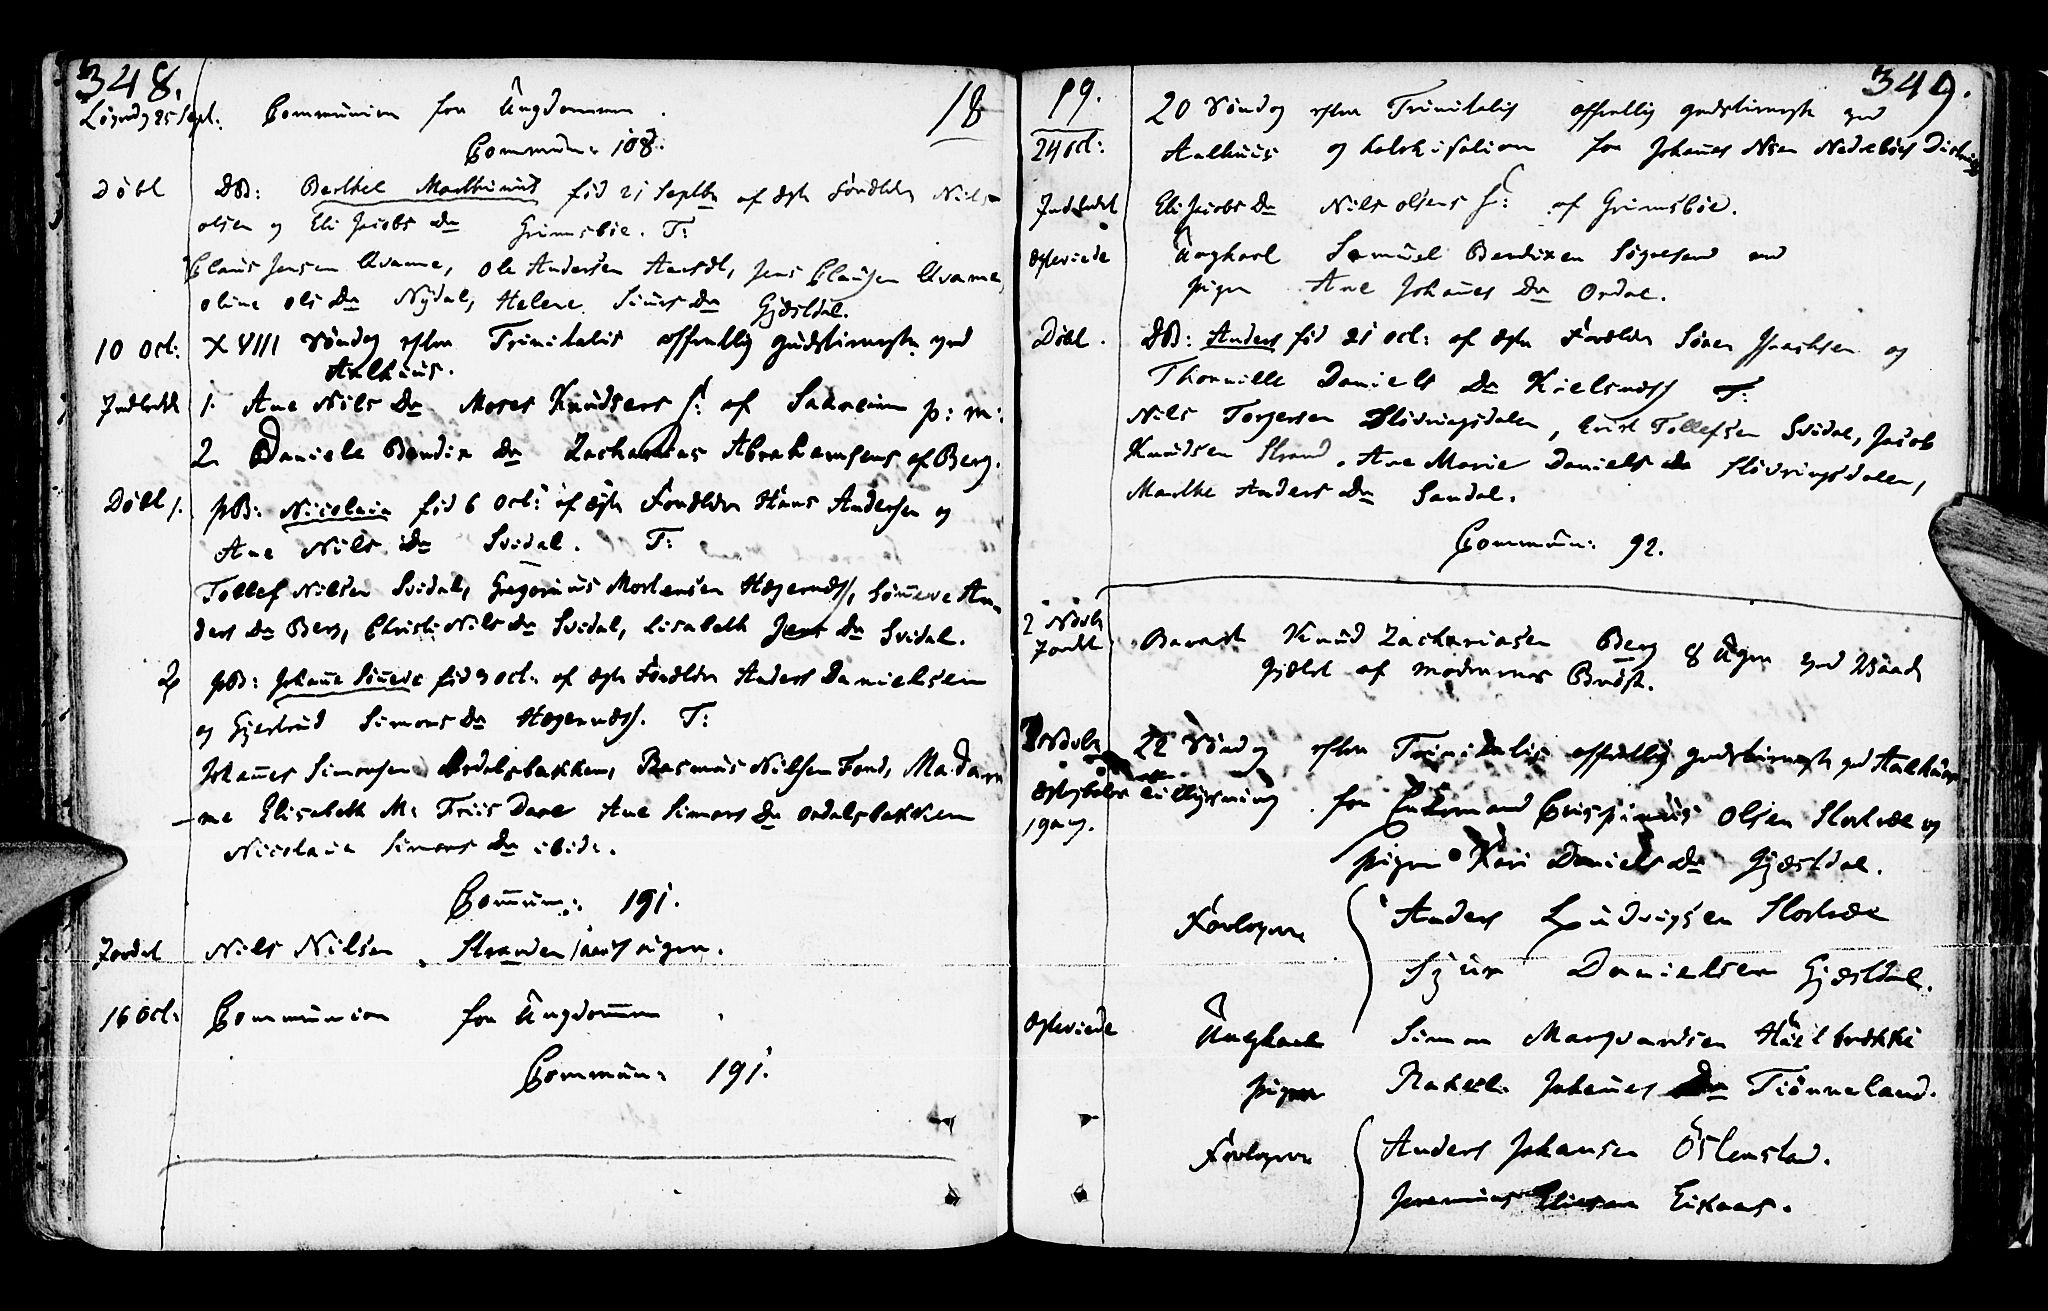 348.
18
Løverdag 25 Sept: Communion for Ungdommen.
Commun: 108.
Døbt DB: Berthel Marthinus fød 21 Septbr af ægte Forældre Nils
olsen og Eli Jacobs Dr Grimsbøe. T:
Claus Jensen Qvame, Ole Andersen Aarsdt, Jens Clausen Qvame,
oline ols Dr Nÿdal, Helene Simes Dr Gjæstdal.
10 Oct: XVIII Søndag efter Trinitatis offentlig gudstieneste ved
Aalhuus.
Indledt 1. Ane Nils Dr Moses Knudsens H: af Sakreim p: m:
2. Daniele Bendix Dr Zacharias Abrahamsens af Berg.
Døbt 1. pB: Nicolaia fød 6 Oct: af ægte Forældre Hans Andersen og
Ane Nils Dr Svidal. T:
Tollef Nilsen Svidal, Gregorius Mortensen Hægernæss, Sømeve An-
ders Dr Berg, Christi Nils Dr Svidal, Lisabeth Jens Dr Svidal.
2 pB: Johane Simeve fød 3 oct: af ægte Forældre Anders Danielsen
og Gjertrud Simons Dr Hægernæss. T:
Johanes Simonsen Ordalsbakken, Rasmus Nilsen Fond, Madam-
me Elisabeth M: Friis Dare Ane Simons Dr Ordalsbakken
Nicolaia Simons Dr ibid:.
Comun: 191.
Jordet Nils Nilsen Stranden
16 Oct: Communion for Ungdommen.
Commun: 191.
19.
349.
24 Oct: 20 Søndag efter Trinitatis offentlig gudstieneste ved
Aalhuus og katekisation for Johanes Nsen Nedrebøes District
Indledt Eli Jacobs Dr Nils olsens H: af Grimsbøe.
Egteviede Ungkarl Samuel Bendixen Søgnesand med
pigen Ane Johanes Dr Ordal.
Døbt. DB: Anders fød 21 oct: af ægte Forældre Søren Isachsen og
Thornille Daniels Dr Kielsnæss T:
Nils Torgersen Støvringsdalen, Enert Tollefsen Svidal, Jacob
Knudsen Strand, Ane Marie Daniels Dr Støvringsdalen,
Marthe Anders Dr Sandal.
Commun: 92.
2 Novbr
Jordet Barnet Knud Zachariasen Berg 8 Uger ved Waade
qvælt af moderens Brÿst.
7 Novbr 22 Søndag efter Trinitatis offentlig gudstieneste ved Aalhuus
Ægteskabs tillysning for Enkemand Crispinus Olsen Stortræe og
1 gang. pigen Kari Daniels Dr Gjæstdal.
Forlovere Anders Ludvigsen Stortræe
Sjur Danielsen Gjæstdal.
Egteviede Ungkarl Simon Marqvardsen Huilbrække
pigen Rakel Johanes Dr Tiønneland.
Forlovere Anders Johansen Østenstad.
Jeremias Eliesen Eikaas.